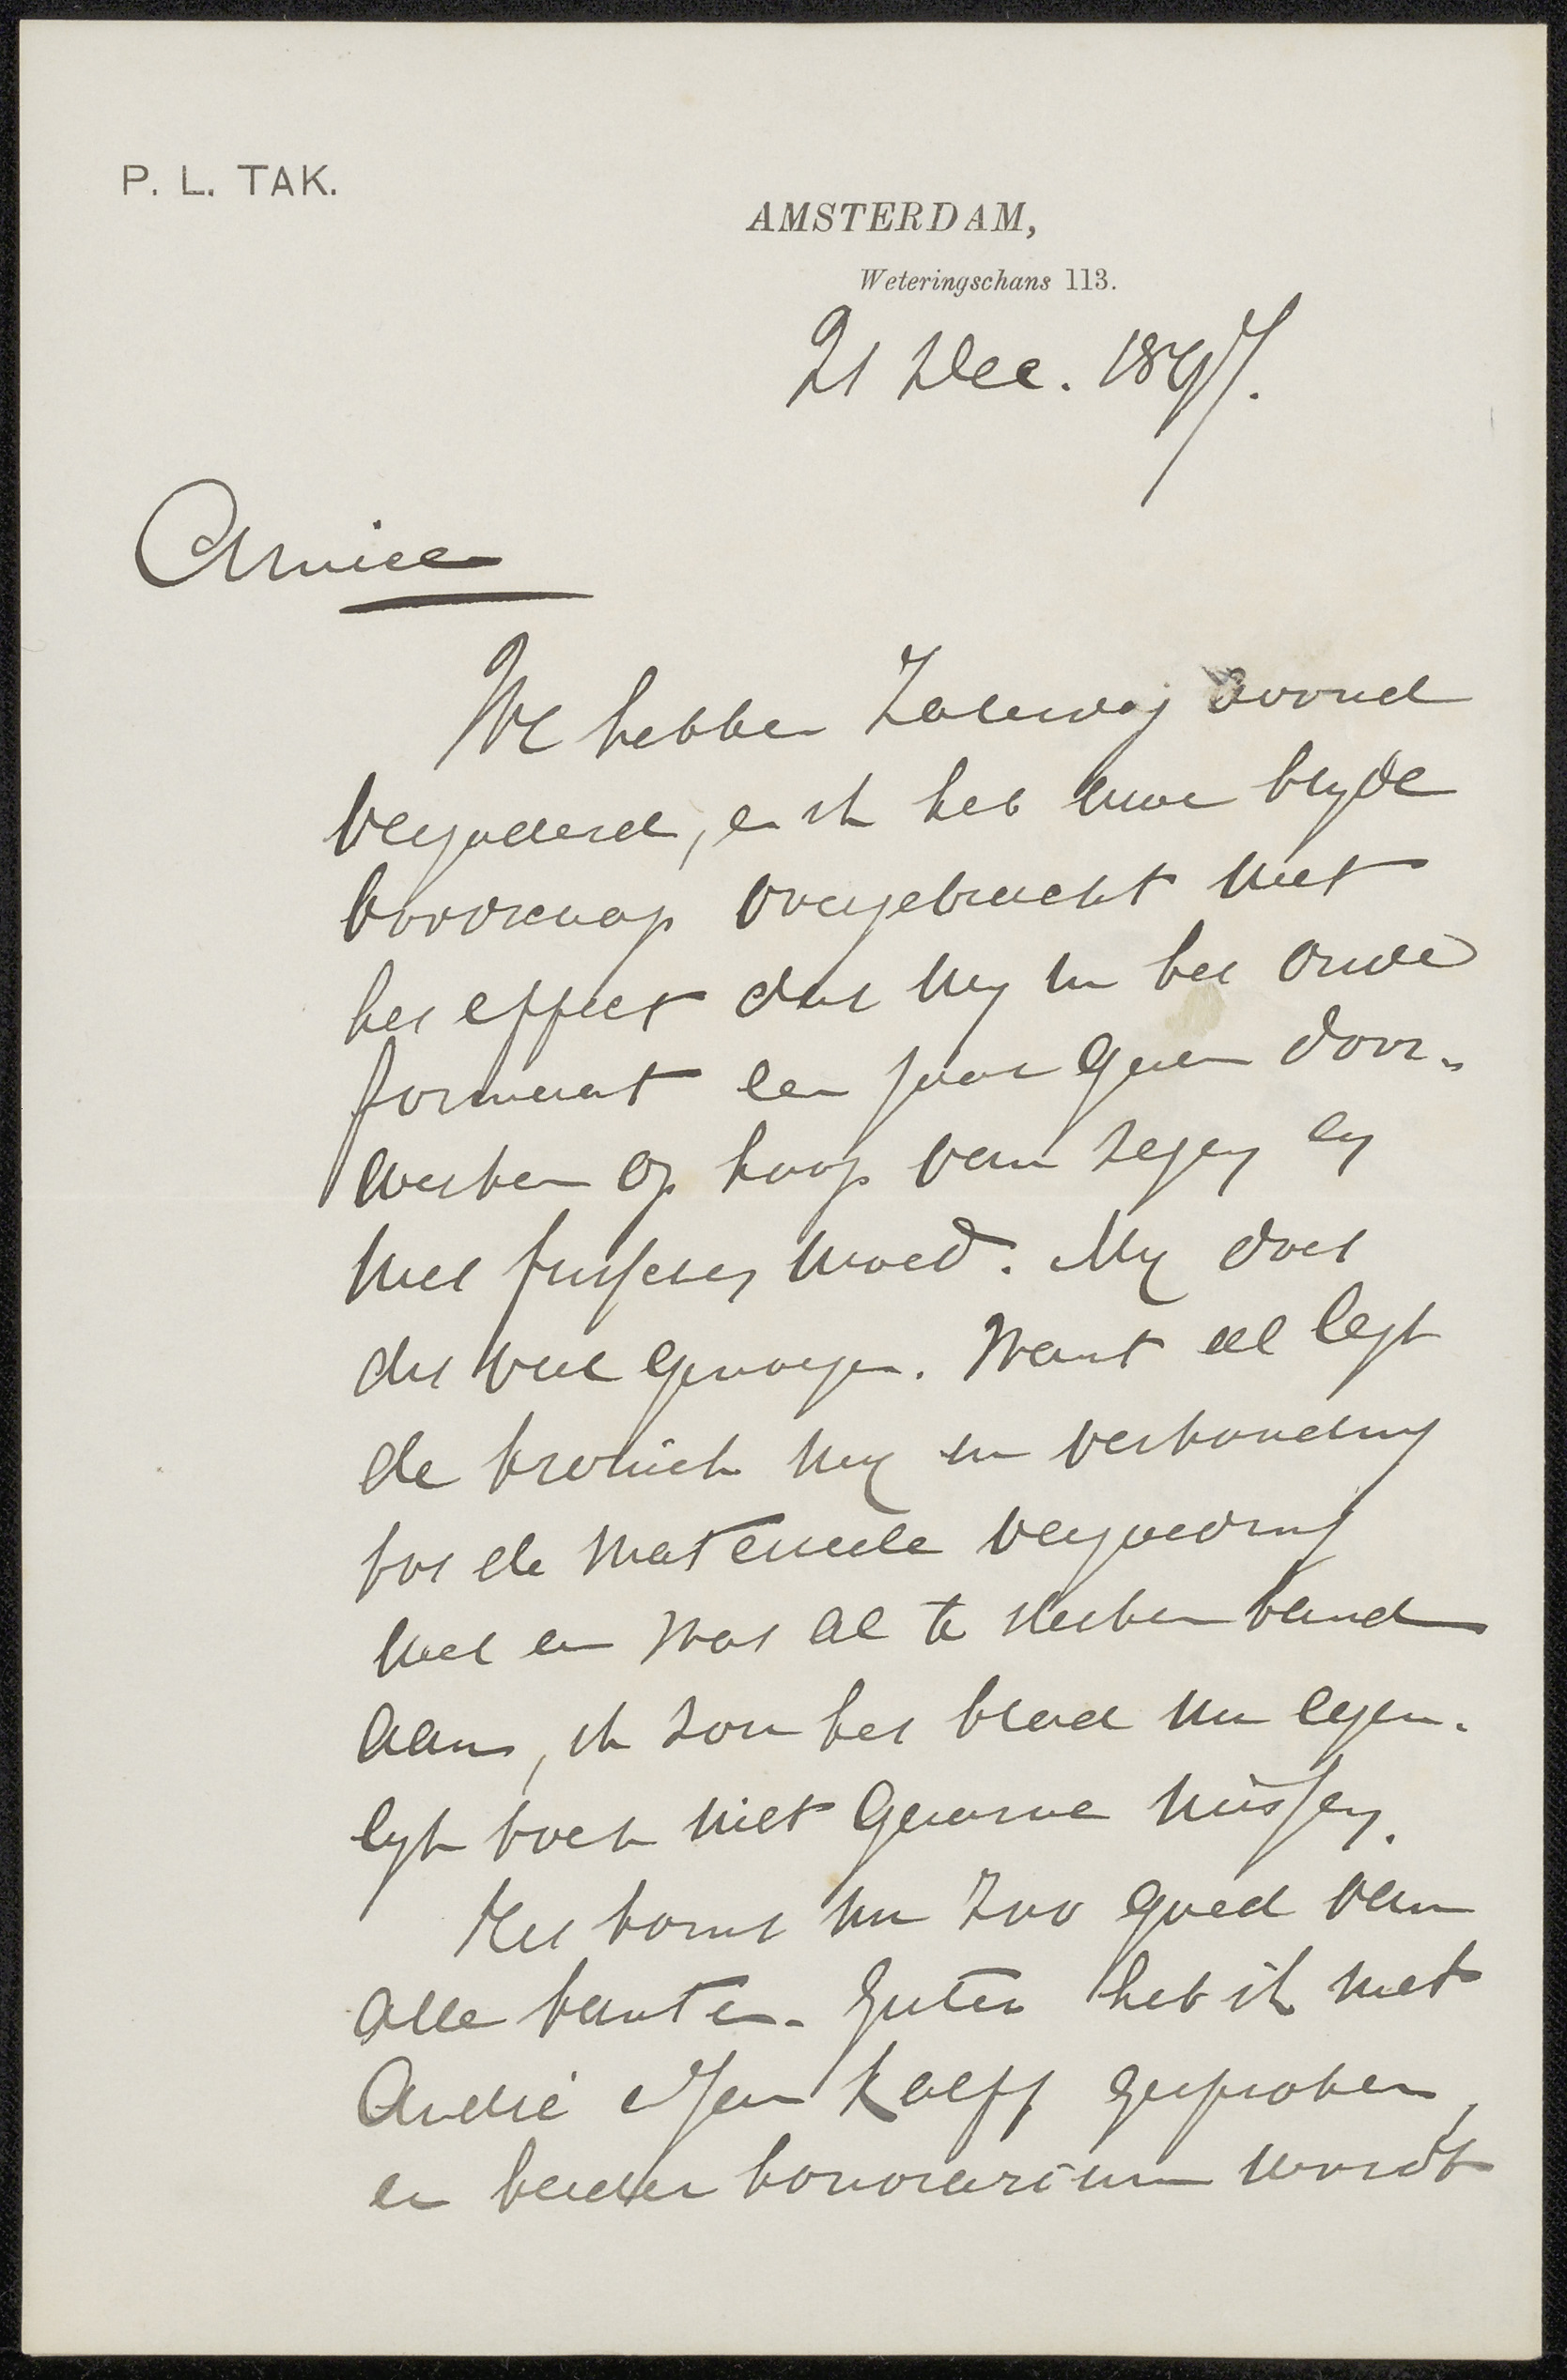 P. L. TAK.
AMSTERDAM,
Weteringschans 113.
21 Dec. 1897.
Amice
We hebben Zaterdag avond
vergaderd, en ik heb uwe blyde
boodschap overgebracht met
het effect dat wy in het oude
formaat een jaar gaan door-
werken op hoop van zegen en
met frisschen moed. My doet
dit veel genoegen. Want al legt
de kroniek my in verhouding
tot de materieele vergoeding
wel en wat al te sterken band
aan, ik zou het blad nu eigen-
lyk toch niet gaarne missen.
Het komt nu zoo goed van
alle kanten. Gister heb ik met
André en Jan Kalff gesproken,
en beider honorarium wordt